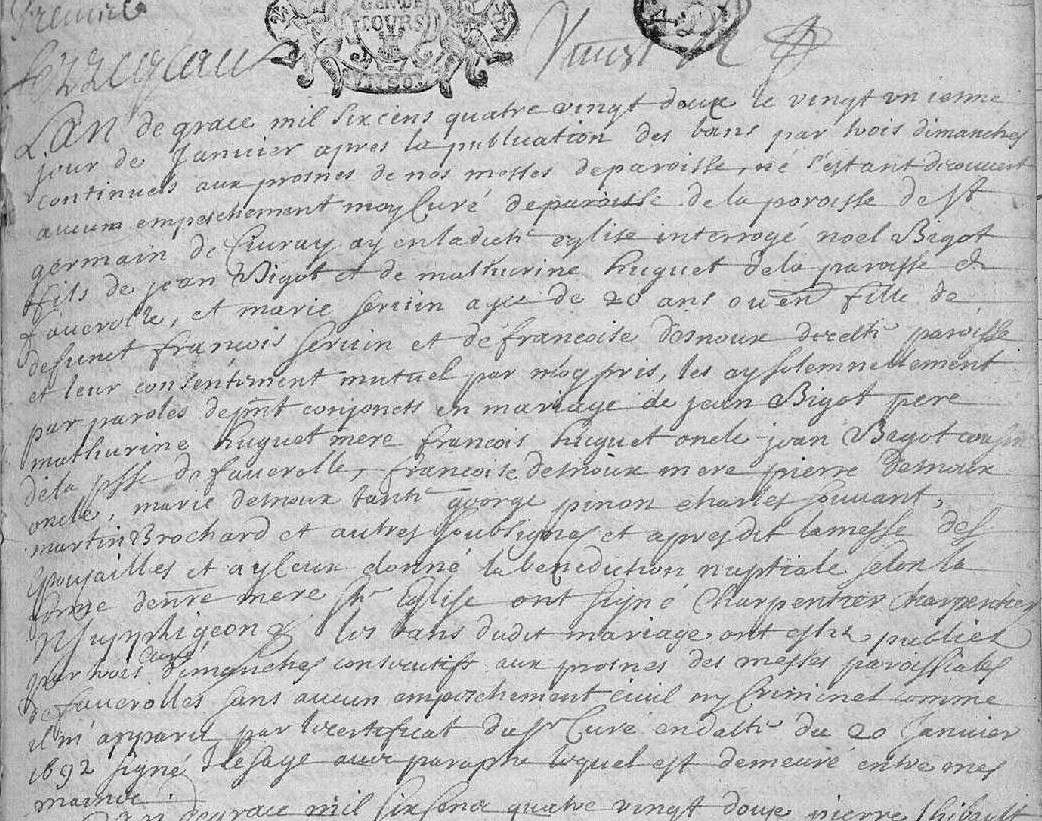 premier
GEN. DE
TOURS
L'An de grace mil six cens quatre vingt douze le vingt un ieme
jour de Janvier apres la publication des bans par trois dimanches
continuels aux prosnes de nos messes de paroisse, ne s'estant decouvert
aucun empeschement moy Curé de paroisse de la paroisse de st
germain de Civray ay en ladicte eglise interrogé noel Bigot
fils de jean Bigot et de mathurine huguet de la paroisse de
faverolle, et marie servin agee de 20 ans ou en fille de
defunct francois servin et de francoise desnoux de cette paroisse
et leur consentement mutuel par moy pris, les ay solemnellement
par paroles de pnt conjoncts en mariage de jean Bigot pere
mathurine huguet mere francois huguet oncle jean Bigot cousin
de la psse de faverolle, francoise desnoux mere pierre desnoux
oncle, marie desnoux tante george pinon charles
martin Brochard et autres soubsignes et apres dit la messe des
Epousailles et ay leur donné la benediction nuptiale selon la
forme de nre mere ste Eglise ont signé Charpentier Charpentier
les bans dudit mariage ont este publies
Curé
par trois dimanches consecutifs aux prosnes des messes paroissiales
de faverolles sans aucun empeschement civil ny Criminel comme
il m'apparu par le certificat du sr Curé en datte du 20 Janvier
1692 signé Lesage avec paraphe lequel est demeuré entre mes
mains.
L'An de grace mil six sens quatre vingt douze pierre thibault